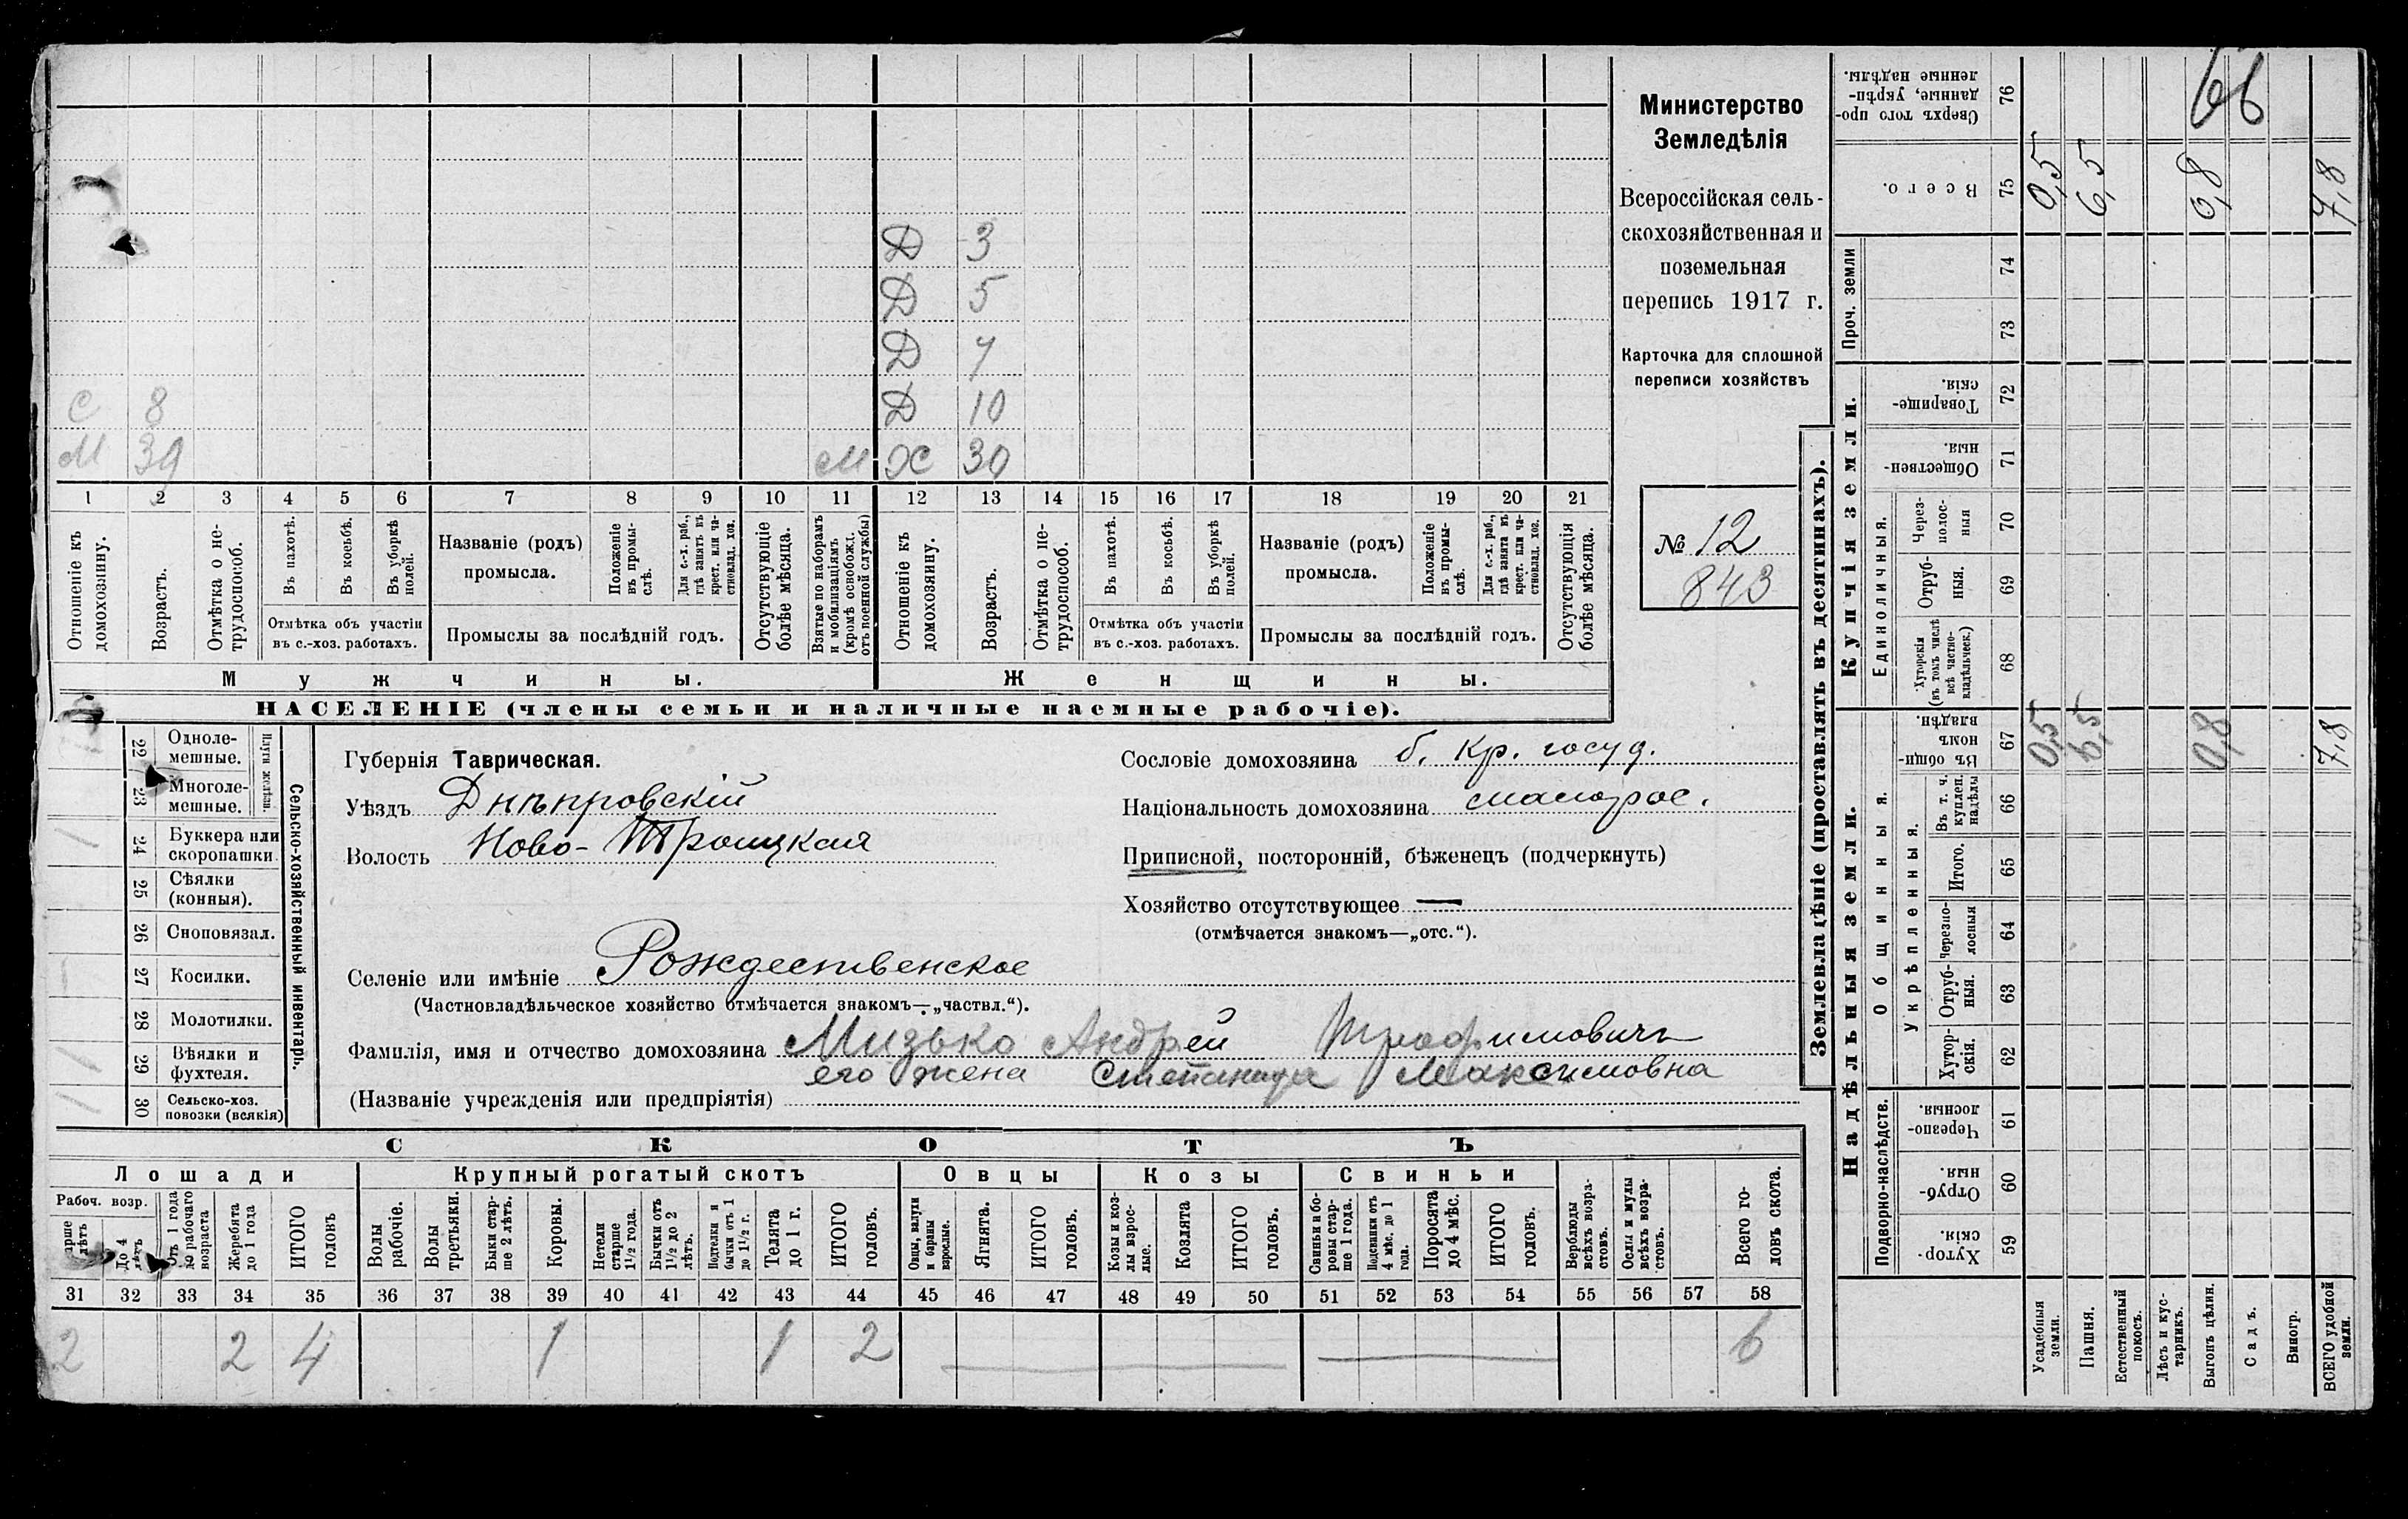 Министерство
Земледѣлія
Всероссійская сель-
скохозяйственная и
поземельная
перепись 1917 г.
Карточка для сплошной
переписи хозяйствъ
№ 12
843
Д 3
Д 5
Д 7
С 8 Д 10
М 39 М Ж 30
1 2 3 4 5 6 7 8 9 10 11 12 13 14 15 16 17 18 19 20 21
Отношеніе къ домохозяину.
Возрастъ.
Отмѣтка о не-трудоспособ.
Въ пахотѣ.
Въ косьбѣ.
Въ уборкѣ полей.
Отмѣтка объ участіи
въ с.-хоз. работахъ.
Названіе (родъ)
промысла.
Положеніе въ промы-слѣ.
Для с.-х. раб., гдѣ занять въ крест. или ча-стновлад. хоз.
Промыслы за послѣдній годъ.
Отсутствующіе болѣе мѣсяца.
Взятые по наборамъ и мобилизаціямъ (кромѣ освобожд. отъ военной службы)
Отношеніе къ домохозяину.
Возрастъ.
Отмѣтка о не-трудоспособ.
Въ пахотѣ.
Въ косьбѣ.
Въ уборкѣ полей.
Отмѣтка объ участіи
въ с.-хоз. работахъ.
Названіе (родъ)
промысла.
Положеніе въ промы-слѣ.
Для с.-х. раб., гдѣ занята въ крест. или ча-стновлад. хоз.
Промыслы за послѣдній годъ.
Отсутствующія болѣе мѣсяца.
Мужчины. Женщины.
НАСЕЛЕНІЕ (члены семьи и наличные наемные рабочіе).
22 Однолемешные.
23 Многолемешные.
Плуги желѣзн.
24 Буккера или скоропашки
25 Сѣялки (конныя).
26 Сноповязал.
27 Косилки.
28 Молотилки.
29 Вѣялки и фухтеля.
30 Сельско-хоз. повозки (всякія)
Сельско-хозяйственный инвентарь.
Губернія Таврическая.
Уѣздъ Днѣпровскій
Волость Ново-Троицкая
Селеніе или имѣніе Рождественское
(Частновладѣльческое хозяйство отмѣчается знакомъ—„частвл.“).
Фамилія, имя и отчество домохозяина Мизько Андрей Трофимовичъ
его жена Степанида Максимовна
(Названіе учрежденія или предпріятія)
Сословіе домохозяина б. кр. госуд.
Національность домохозяина малорос.
Приписной, посторонній, бѣженецъ (подчеркнуть)
Хозяйство отсутствующее —
(отмѣчается знакомъ—„отс.“).
СКОТЪ
Лошади Крупный рогатый скотъ Овцы Козы Свиньи
Рабоч. возр.
До 4 лѣтъ
Отъ 1 года до рабочаго возраста
Жеребята до 1 года
ИТОГО головъ
Волы рабочіе.
Волы третьяки.
Быки стар-ше 2 лѣтъ.
Коровы.
Нетели старше 1½ года.
Бычки отъ 1½ до 2 лѣтъ.
Подтелки и бычки отъ 1 до 1½ г.
Телята до 1 г.
ИТОГО головъ.
Овцы, валухи и бараны взрослые.
Ягнята.
ИТОГО головъ.
Козы и коз-лы взрос-лые.
Козлята
ИТОГО головъ.
Свиньи и бо-ровы стар-ше 1 года.
Подсвинки отъ 4 мѣс. до 1 года.
Поросята до 4 мѣс.
ИТОГО головъ.
Верблюды всѣхъ возра-стовъ.
Ослы и мулы всѣхъ возра-стовъ.
Всего го-ловъ скота.
31 32 33 34 35 36 37 38 39 40 41 42 43 44 45 46 47 48 49 50 51 52 53 54 55 56 57 58
2 2 4 1 1 2 6
Землевладѣніе (проставлять въ десятинахъ).
Надѣльныя земли. Купчія земли. Проч. земли
Подворно-наслѣдств.
Общинныя.
Укрѣпленныя.
Единоличныя.
Хутор-скія. 59
Отруб-ныя. 60
Черезпо-лосныя. 61
Хутор-скія. 62
Отруб-ныя. 63
Черезпо-лосныя 64
Итого. 65
Въ т. ч. куплен. надѣлы 66
Въ общин-номъ владѣн. 67
Хуторскія (въ томъ числѣ всѣ частно-владѣльческ.) 68
Отруб-ныя. 69
Через-полос-ныя 70
Обществен-ныя 71
Товарище-скія. 72
73
74
Всего. 75
Сверхъ того про-данные, укрѣп-ленные надѣлы. 76
Усадебныя земли. 0,5 0,5
Пашня. 6,5 6,5
Естественный покосъ.
Лѣсъ и кус-тарникъ.
Выгонъ цѣлин. 0,8 0,8
Садъ.
Виногр.
ВСЕГО удобной земли. 7,8 7,8